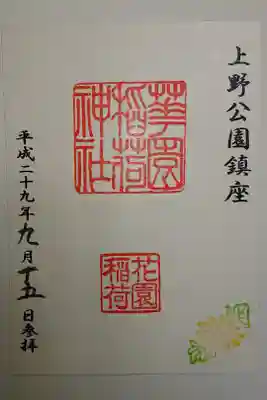 上野公園鎮座
華園
稻荷
神社
花園
稲荷
平成二十九年九月十五日参拝